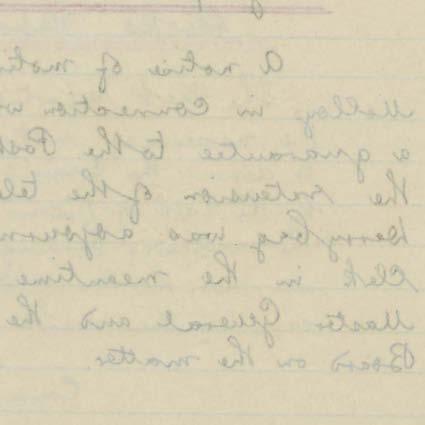 A notice of moti
Molloy in connection w
a guarantee to the Post
the extension of the tel
Derrybeg was adjourn
Clerk in the meantime
Master General and the
Board on the matter.